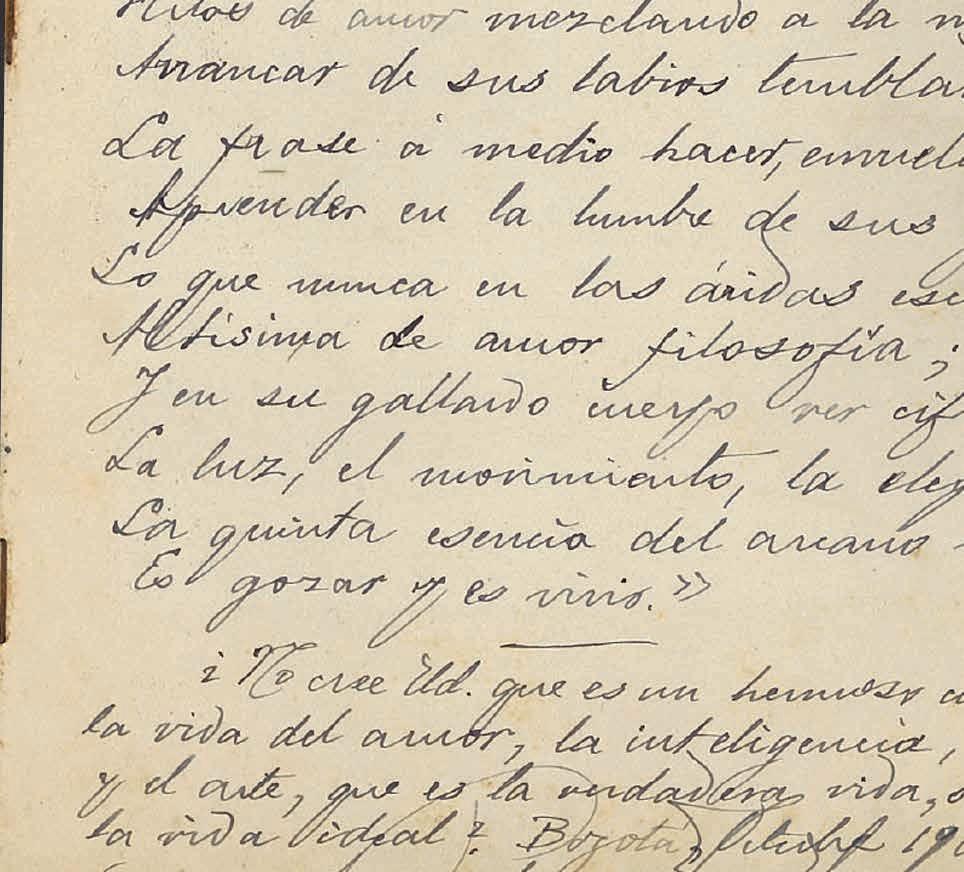 de amor mezclando a la
Arrancar de sus labios
La frase á medio hacer,
Aprender en la lumbre de sus
Lo que nunca en las áridas
Altísima de amor filosofía;
Y en su gallardo cuerpo ver
La luz, el movimiento, la
La quinta esencia del arcano
Es gozar y es vivir.»
¿No cree Ud. que es un hermoso
la vida del amor, la inteligencia,
y el arte, que es la verdadera vida,
la vida ideal? Bogotá, Octubre